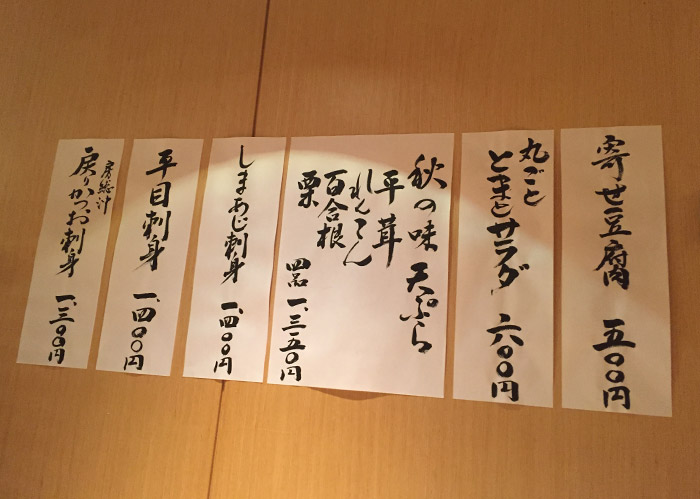 寄せ豆腐 五〇〇円
丸ごと
とまとサラダ 六〇〇円
秋の味 天ぷら
平茸
れんこん
百合根
栗
四品 一、三五〇円
しまあじ刺身 一、四〇〇円
平目刺身 一、四〇〇円
房総沖
戻りかつお刺身 一、三〇〇円